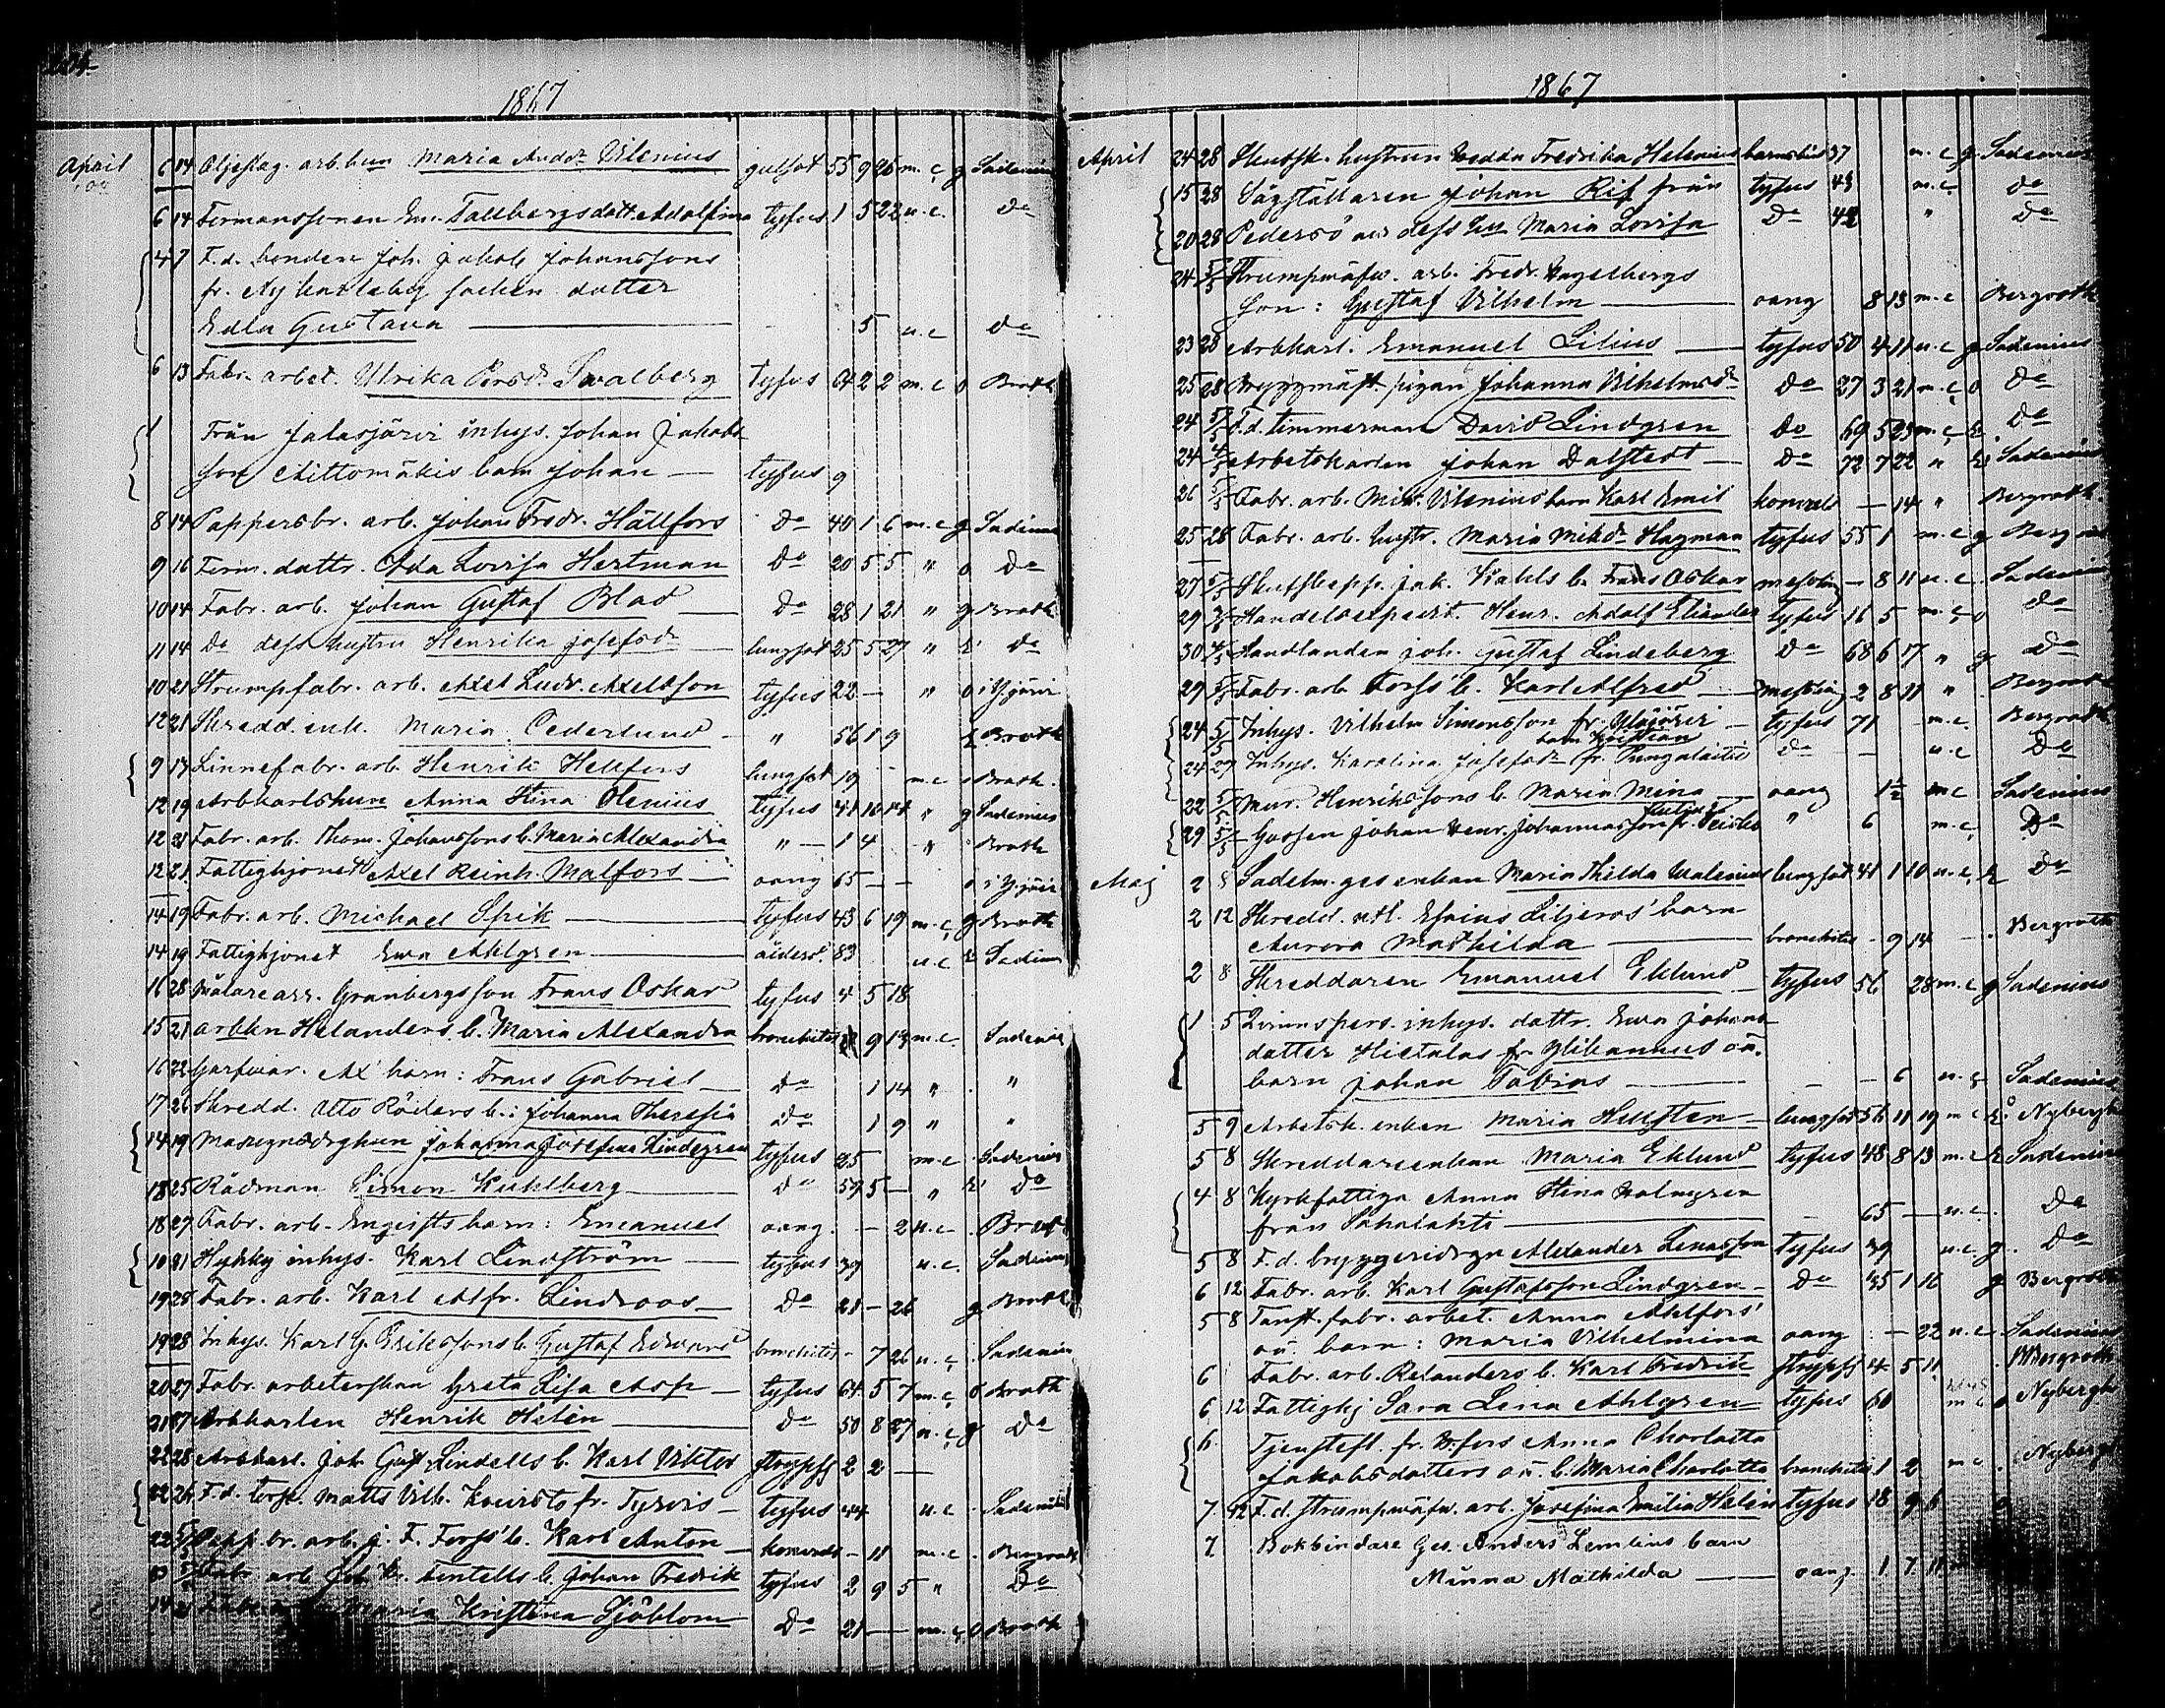 1867
April 6 14 Oljeslag. arb. hun Maria Andr Vilenius gulsot 55 9 26 m. c g Sadenius
6 14 Formanssonen Em. Tallbergs dott. Adolfina tyfus 1 5 22 u. c. Do
4 7 F.d. bonden Joh. Jakob Johanssons
fr. Nykarleby socken dotter
Edla Gustava — 5 u. c Do
6 13 Fabr. arbet. Ulrika Persdr Svalberg tyfus 64 2 2 m. c o Broth
1 Från Jalasjärvi inhys. Johan Jakobs
son Mittomäkis barn Johan — tyfus 9
8 14 Pappersbr. arb. Johan Fredr. Hällfors Do 40 1 6 m. c g Sadenius
9 16 Form. dottr. Ada Lovisa Hertman Do 20 5 5 " o Do
10 14 Fabr. arb. Johan Gustaf Blad Do 28 1 21 " g Broth
11 14 Do dess hustru Henrika Josefsdr lungsot 25 5 27 " Do
10 21 Strumpfabr. arb. Axel Ludv. Axelsson tyfus 22 — "
12 21 Skredd. enk. Maria Cederlund " 56 1 9 E Broth
9 17 Linnefabr. arb. Henrik Hellfors lungsot 19 m. c Broth.
12 19 Arbkarlshun Anna Stina Olenius tyfus 44 10 14 " g Sadenius
12 21 Fabr. arb. Thom. Johanssons b. Maria Alexandra " — 1 4 " Broth
12 21 Fattighjonet Axel Reinh. Malfors oang 65 — —
14 19 Fabr. arb. Michael Spik tyfus 43 6 19 m. c g Broth
14 19 Fattighjonet Eva Ahlgren ålders. 83 u. c E Sadenius
16 28 Målare arb. Granbergs son Frans Oskar tyfus 4 5 18
15 21 arbkn Helanders b. Maria Alexandra bronchites 9 13 m. c. Sadenius
16 22 Garfvar. Ax' barn: Frans Gabriel Do 1 14 " "
17 26 Skredd. Otto Röders b.: Johanna Theresia Do 1 9 " "
14 19 Johanna Josefina Lindegren tyfus 25 m. c Sadenius
18 25 Rådman Simon Kuhlberg Do 59 5 — " E Do
18 27 Fabr. arb. Engvists barn: Emanuel oang. — 2 u. c. Broth
10 21 Hykky inhys. Karl Lindström tyfus 39 u. c. Sadenius
19 28 Fabr. arb. Karl Alfr. Lindroos Do 21 — 26 g Broth
19 28 Inhys. Karl G. Erikssons b. Gustaf Edvard bronchites — 7 26 u. c. Sadenius
20 27 Fabr. arbeterskan Greta Lisa Asp tyfus 64 5 7 m. c o Broth
21 27 Arbkarlen Henrik Helén Do 50 8 27 u. c g Do
22 28 Arbkarl. Joh. Gust. Lindells b. Karl Viktor strypsj 2 2 —
22 26 F.d. torp. Matts Vilh. Koivisto fr. Tyrvis tyfus 44 u. c. Sadenius
22 5/5 Papp. br. arb. J. F. Forss' b. Karl Anton — 11 m. c. Bergroth
Fabr. arb. Joh. Hr. b. Johan Fredrik tyfus 2 9 5 " Do
Maria Kristina Sjöblom Do 21 — — m. c o Broth
1867
April 24 28 Skutsk. hustrun Hedda Fredrika Helenius barnsbörd 37 m. c g Sadenius
15 28 Sågställaren Johan Rif från tyfus 43 m. c Do
20 28 Pedersö och dess hu Maria Lovisa Do 42 " Do
24 5/5 Strumpväfv. arb. Fredr. Engelbergs
son: Gustaf Vilhelm — oang 8 13 m. c Bergroth
23 28 Arbkarl. Emanuel Lilius tyfus 50 4 11 u. c g Sadenius
25 28 Bryggmäst. pigan Johanna Vilhelmsdr Do 27 3 21 m. c o Do
24 5/5 F.d. timmerman David Lindgren Do 69 5 23 m. c E Do
24 Arbetskarlen Johan Dalstedt Do 72 7 22 " E Sadenius
26 5/5 Fabr. arb. Mik. Vilenius barn Karl Emil — 14 " Bergroth
25 28 Fabr. arb. hustr. Maria Mikdr Hagman tyfus 55 1 m. c g Bergroth
27 5/5 Skutskepp. Jak. Kahls b. Frans Oskar messling — 8 11 u. c. Sadenius
29 Handelsexpedit. Henr. Adolf Elander tyfus 16 5 m. c o Do
30 Handlanden Joh. Gustaf Lindeberg Do 68 6 17 " g Do
29 5/5 Fabr. arb. Forss' b. Karl Alfred messling 2 8 11 " Bergroth
24 5/5 Inhys. Vilhelm Simonsson fr. Ylöjärvi tyfus 71 m. c. Bergroth
barn Kristian
24 27 Inhys. Karolina Josefsdr fr. Pungalaitio Do — u. c Do
22 5/5 Mur. Henrikssons b. Maria Mina oang 1½ m. c Sadenius
29 5/5 Gossen Johan Henr. Johannesson fr. " 6 m. c. Do
Maj 2 8 Sadelm. ges. enkan Maria Thilda Walenius lungsot 41 1 10 u. c. E Do
2 12 Skredd. Esaias Liljeros' barn
Aurora Mathilda — bronchites — 9 14 — . Bergroth
2 8 Skreddaren Emanuel Eklund tyfus 56 28 m. c g Sadenius
1 5 Qvinnspers. inhys. dottr. Eva Johans-
dotter Hietalas fr. Ylikannus oä.
barn Johan Tobias — — — 6 u. c Sadenius
5 9 Arbetsk. enkan Maria Hellsten lungsot 56 11 19 m. c E Nybergh
5 8 Skreddarenkan Maria Eklund tyfus 48 8 13 m. c E Sadenius
4 8 Kyrkfattiga Anna Stina Holmgren
från Sahalahti — 65 — u. c. Do
5 8 F.d. bryggeridrgn Alexander Lenasson tyfus 39 u. c. g. Do
6 12 Fabr. arb. Karl Gustafsson Lindgren Do 35 1 16 g Bergroth
5 8 fabr. arbet. Anna Ahlfors'
oä. barn: Maria Vilhelmina oang — 22 u. c Sadenius
6 Fabr. arb. Relanders b. Karl Fredrik strypsj 4 5 11 . Bergroth
6 12 Fattighj Sara Lena Ahlgren tyfus 60 m c o Nybergh
6. Tjenstefl. fr. H:fors Anna Charlotta
Jakobsdotters oä. b. Maria Charlotta bronchites 1 2 m c . Nybergh
7. 12 F.d. strumpväfv. arb. Josefina Emilia Helén tyfus 18 9 6 o
7 Bokbindare Ges. Anders Lemlins barn
Minna Mathilda — oang. 1 7 11